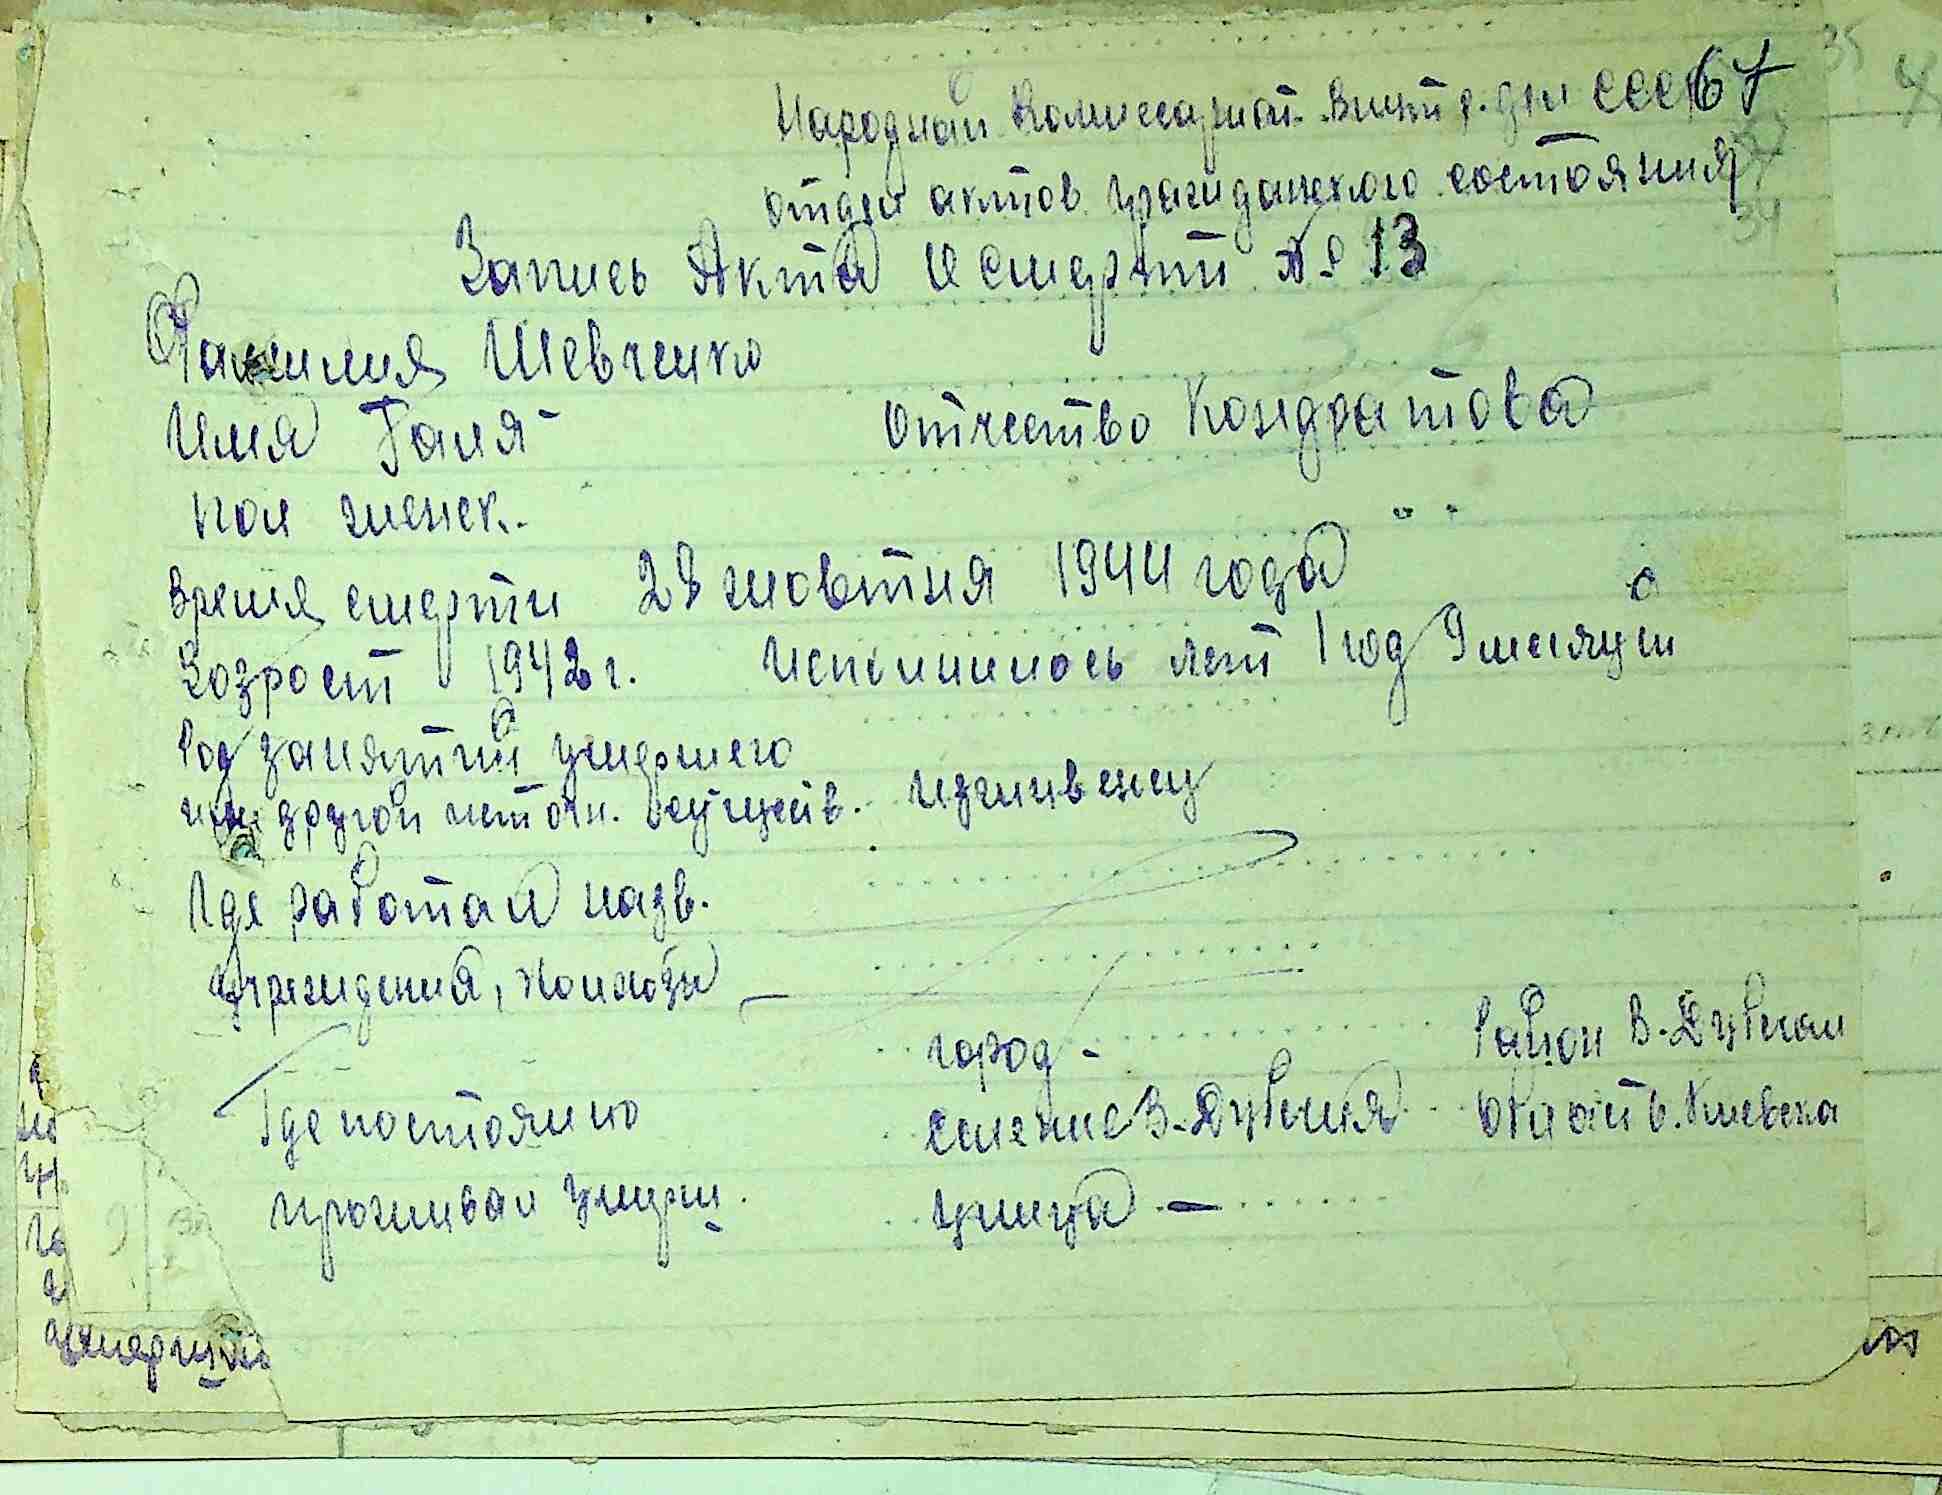 Народный Комиссариат Внутр. дел СССР 67
отдел актов гражданского состояния
34
Запись Акта О смерти № 13
Фамилия Шевченко
Имя Галя Отчество Кондратова
пол женск.
время смерти 28 жовтня 1944 года
Возрост 1942 г. исполнилось лет 1 год 9 месяцей
Род занятий умершего
или другой источ. сущеcтв. иживенец
Где работал назв.
учреждения, колхоза —
город - Район В-Дубечан
Где постоянно селение В-Дубечня Област ь. Киевска
проживал умерш. улица —
умерший